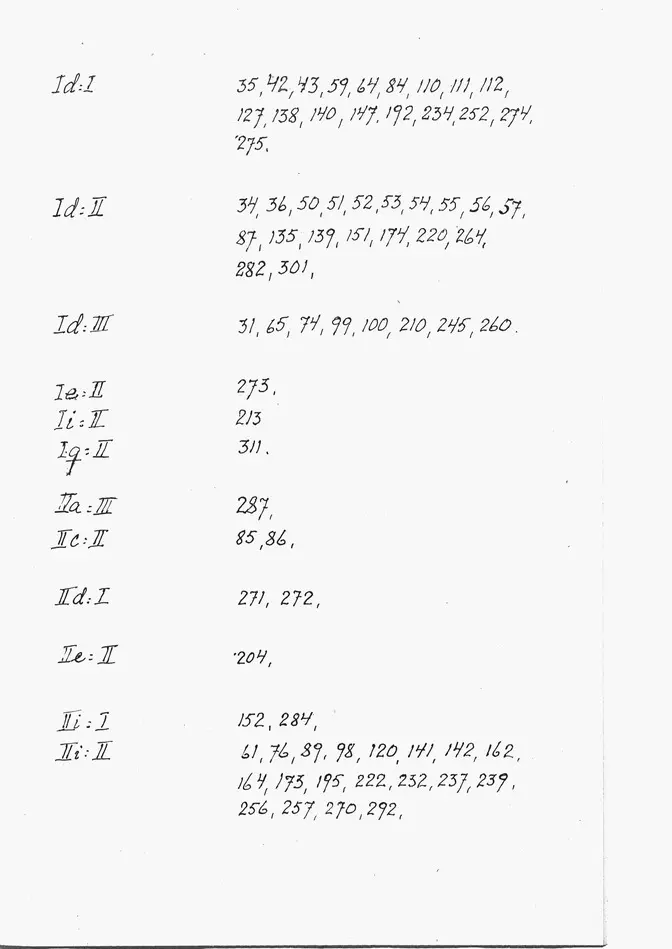 Id:I 35, 42, 43, 59, 64, 84, 110, 111, 112,
127, 138, 140, 147. 192, 234, 252, 274,
275.
Id:II 34, 36, 50, 51, 52, 53, 54, 55, 56, 57,
87, 135, 139, 151, 174, 220, 264,
282, 301,
Id:III 31, 65, 74, 99, 100, 210, 245, 260.
Ie:II 273,
Ii:II 213
Iq:II 311.
IIa:III 287,
IIc:II 85, 86,
IId:I 271, 272,
IIe:II 204,
IIi:I 152, 284,
IIi:II 61, 76, 89, 98, 120, 141, 142, 162,
164, 173, 195, 222, 232, 237, 239,
256, 257, 270, 292,